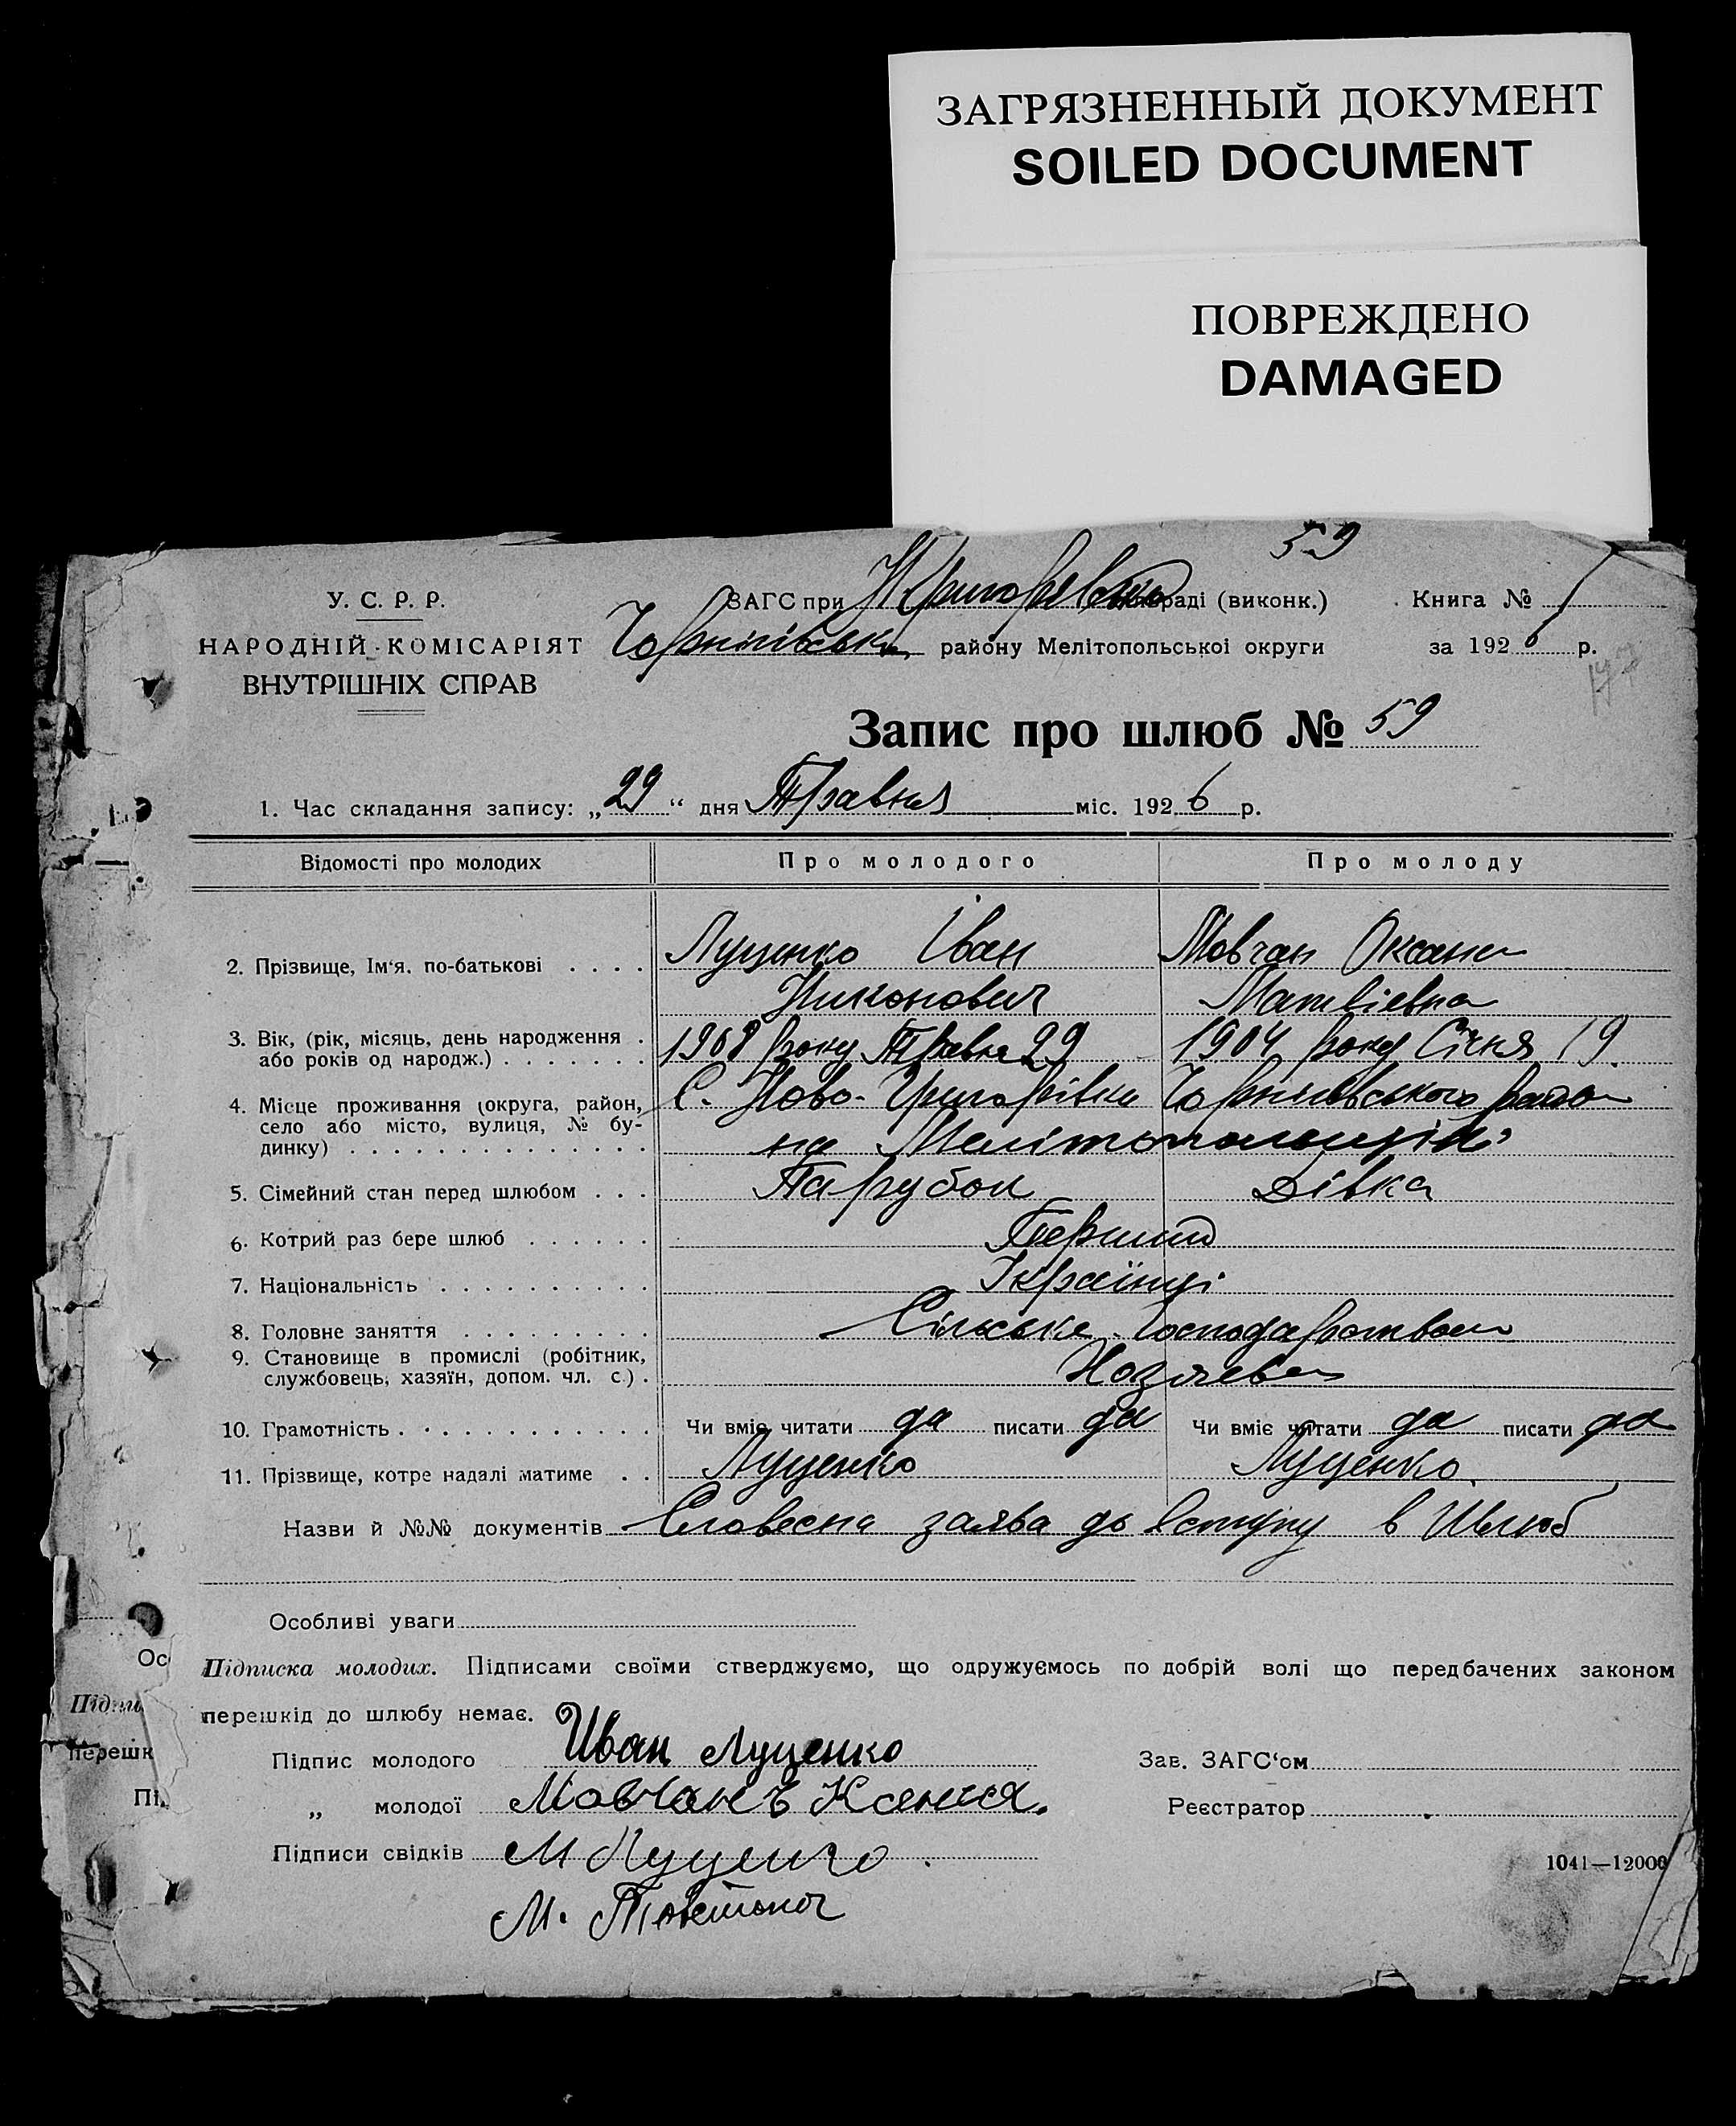 ЗАГРЯЗНЕННЫЙ ДОКУМЕНТ
SOILED DOCUMENT
ПОВРЕЖДЕНО
DAMAGED
59
У. С. Р. Р.
ЗАГС при Н Григорівська раді (виконк.)
Книга № 1
НАРОДНІЙ КОМІСАРІЯТ
району Мелітопольської округи
за 1926 р.
ВНУТРІШНІХ СПРАВ
Запис про шлюб № 59
1. Час складання запису: „29“ дня Травня міс. 1926 р.
Відомості про молодих
Про молодого
Про молоду
2. Прізвище, Ім'я, по-батькові . . . . Луценко Іван Мовчан Оксана
Никонович Матвієвна
3. Вік, (рік, місяць, день народження . або років од народж.) . . . . . . . 1908 року Травня 29 1904 року Січня 19.
4. Місце проживання (округа, район, С. Ново-Григорівка Чернігівського району
село або місто, вулиця, № бу-
динку) . . . . . . . . . . . . . . на Мелітопольщіні
5. Сімейний стан перед шлюбом . . . Парубок Дівка
6. Котрий раз бере шлюб . . . . . . Перший
7. Національність . . . . . . . . . . Українці
8. Головне заняття . . . . . . . . . Сільське господарство
9. Становище в промислі (робітник,
службовець, хазяїн, допом. чл. с.) .
10. Грамотність . . . . . . . . . . . Чи вміє читати да писати да Чи вміє читати да писати да
11. Прізвище, котре надалі матиме . . Луценко Луценко.
Назви й №№ документів Словесна заява до вступу в Шлюб
Особливі уваги
Ос
Підписка молодих. Підписами своїми стверджуємо, що одружуємось по добрій волі що передбачених законом
перешкід до шлюбу немає.
перешк
Підпис молодого Иван Луценко
Зав. ЗАГС'ом
„ молодої Мовчанъ Ксения.
Реєстратор
Підписи свідків М Луценко.
1041—12000
М.